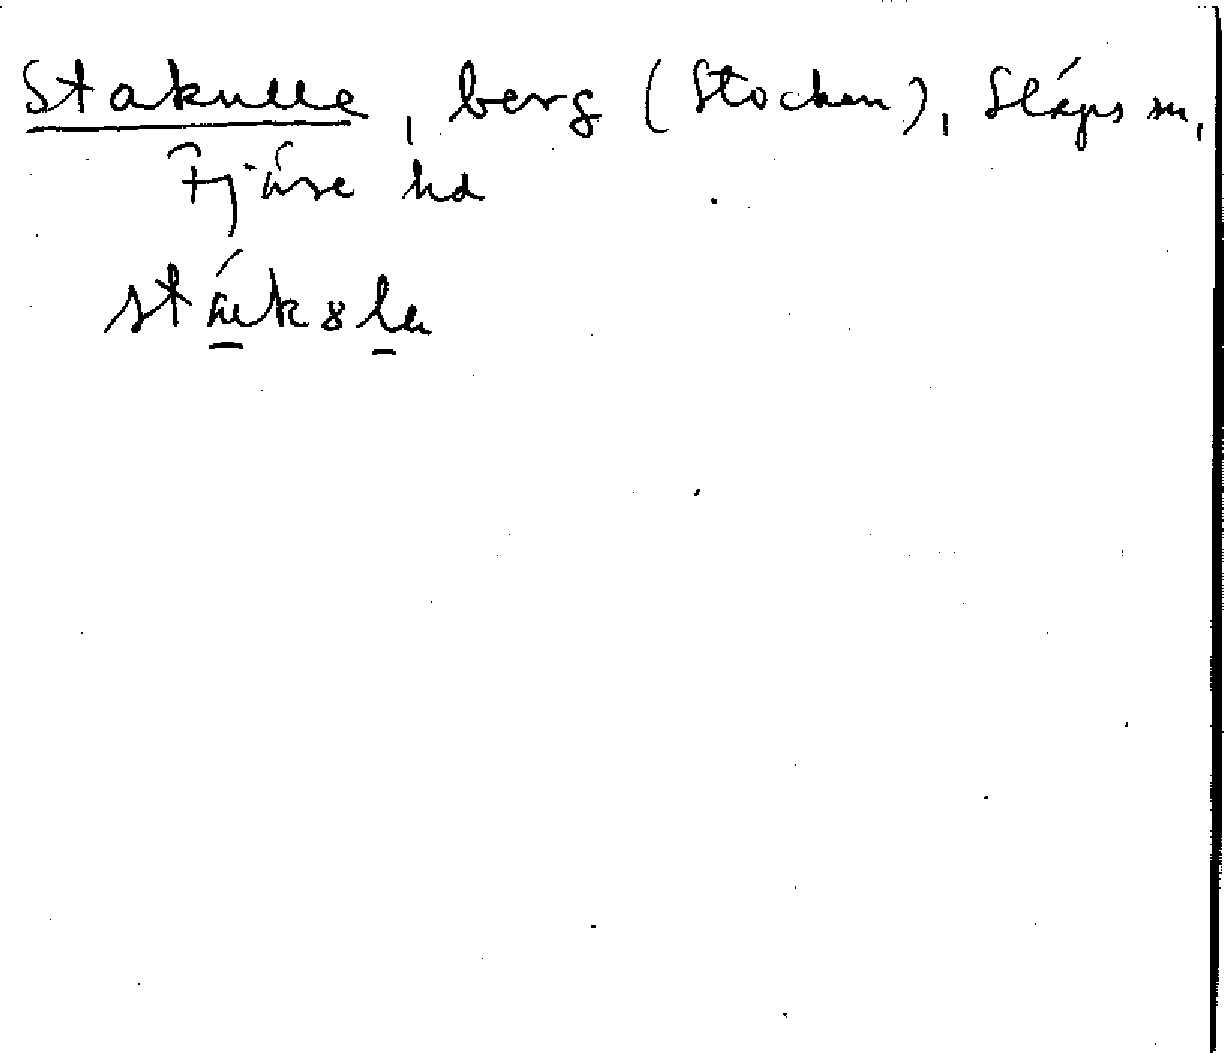 Stakulle, berg (Stocken), Släps sn,
Fjäre hd